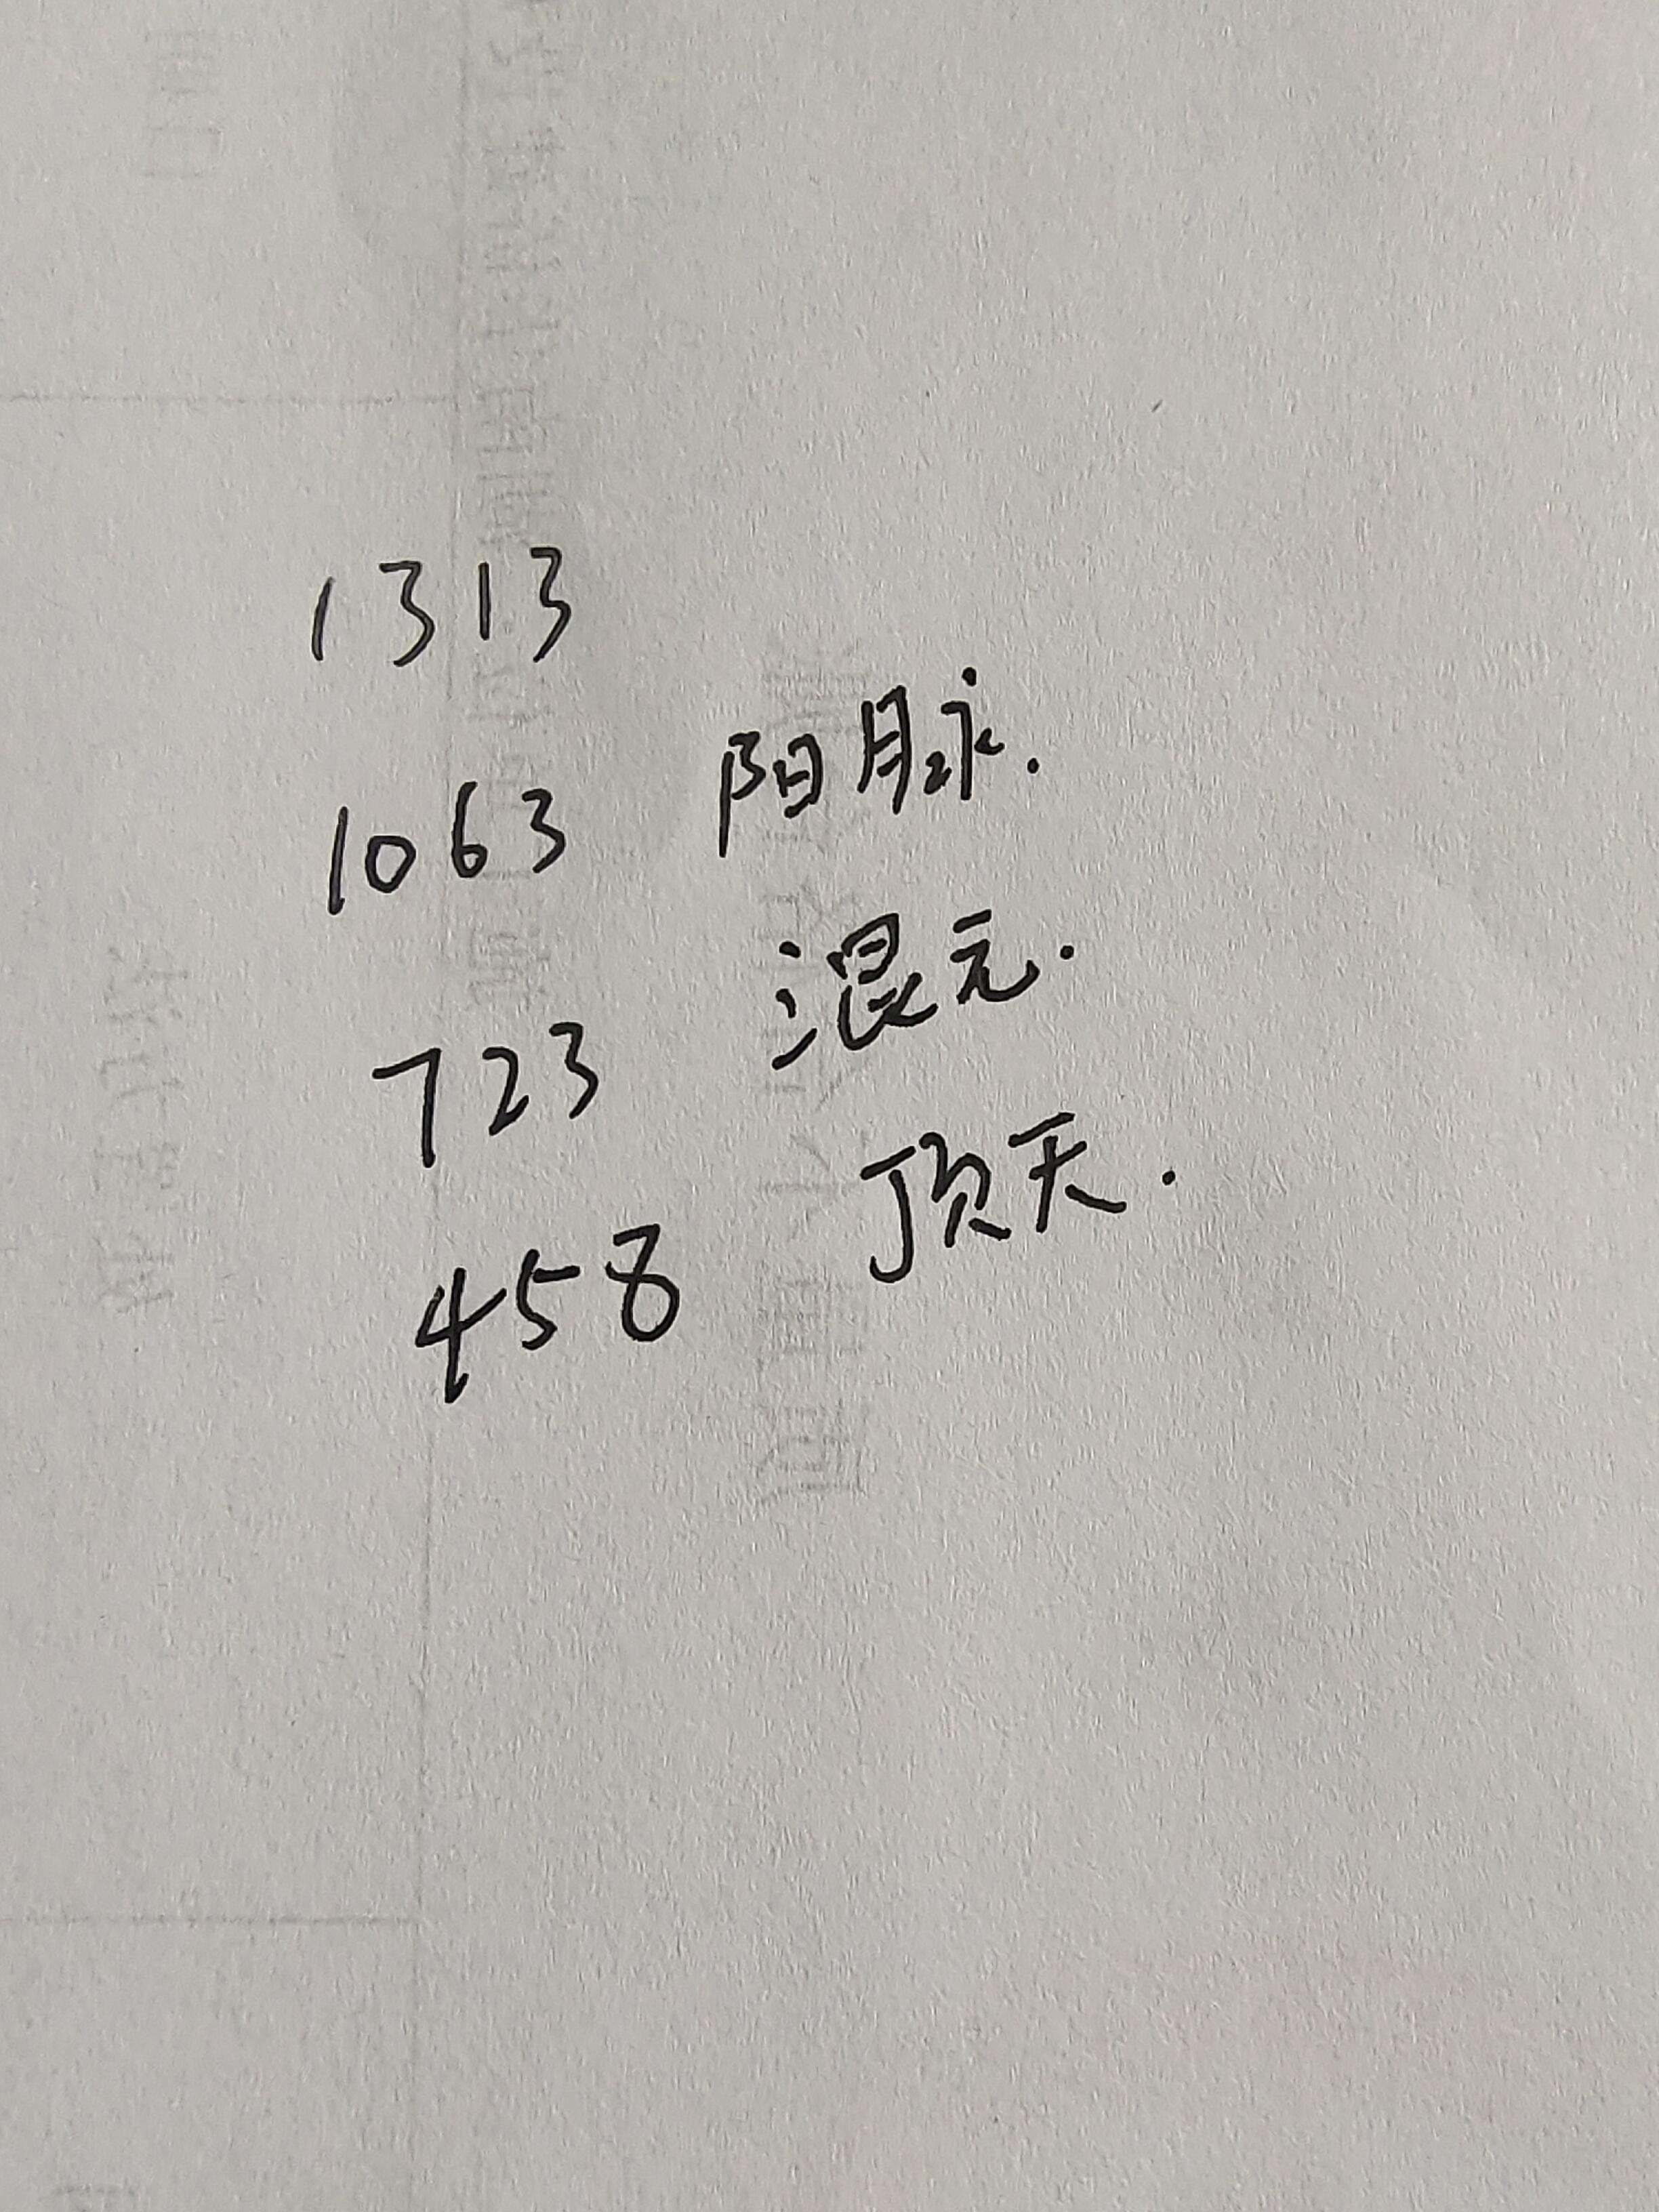 1313
1063 阳脉.
723 混元.
458 顶天.